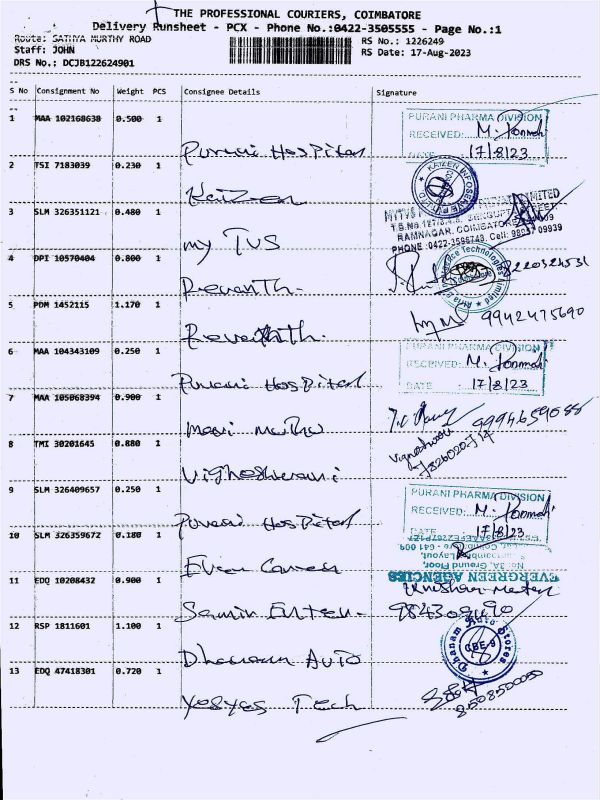 THE PROFESSIONAL COURIERS, COIMBATORE
Delivery Runsheet - PCX - Phone No.:0422-3505555 - Page No.:1
Route: SATHYA MURTHY ROAD
Staff: JOHN
DRS No.: DCJB122624901
RS No.: 1226249
RS Date: 17-Aug-2023
S No Consignment No Weight PCS Consignee Details Signature
1 MAA 102168638 0.500 1 Purani Hospital
PURANI PHARMA DIVISION
RECEIVED: M. Ponmani
DATE : 17/8/23
2 TSI 7183039 0.230 1 Kaizen
KAIZEN
3 SLM 326351121 0.480 1 my TVS
PRIVATE LIMITED
RAMNAGAR, COIMBATORE
4 DPI 10570404 0.800 1 Revanth.
8220324531
5 PDM 1452115 1.170 1 Revanth.
9942475690
6 MAA 104343109 0.250 1 Purani Hospital
PURANI PHARMA DIVISION
RECEIVED: M. Ponmani
DATE : 17/8/23
7 MAA 105068394 0.900 1 mari muthu
8 TMI 30201645 0.880 1 Vigneshwarni
9 SLM 326409657 0.250 1 Purani Hospital
PURANI PHARMA DIVISION
RECEIVED: M. Ponmani
DATE : 17/8/23
10 SLM 326359672 0.180 1
EVERGREEN AGENCIES
No: 3A, Ground Floor,
11 EDQ 10208432 0.900 1
12 RSP 1811601 1.100 1 Dhanam Auto
Dhanam Auto Stores
CBE-9
13 EDQ 47418301 0.720 1 Yesyes Tech